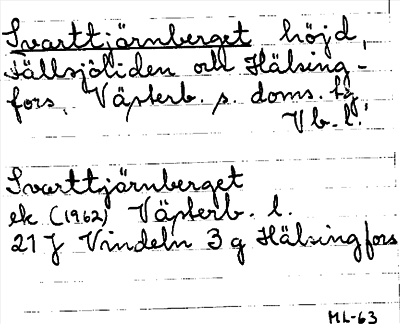 Svarttjärnberget höjd,
Fällsjöliden och Hälsing-
fors, Västerb. s. doms. tg
Vb. l.
Svarttjärnberget
ek. (1962) Västerb. l.
21 J Vindeln 3 g Hälsingfors
ML-63